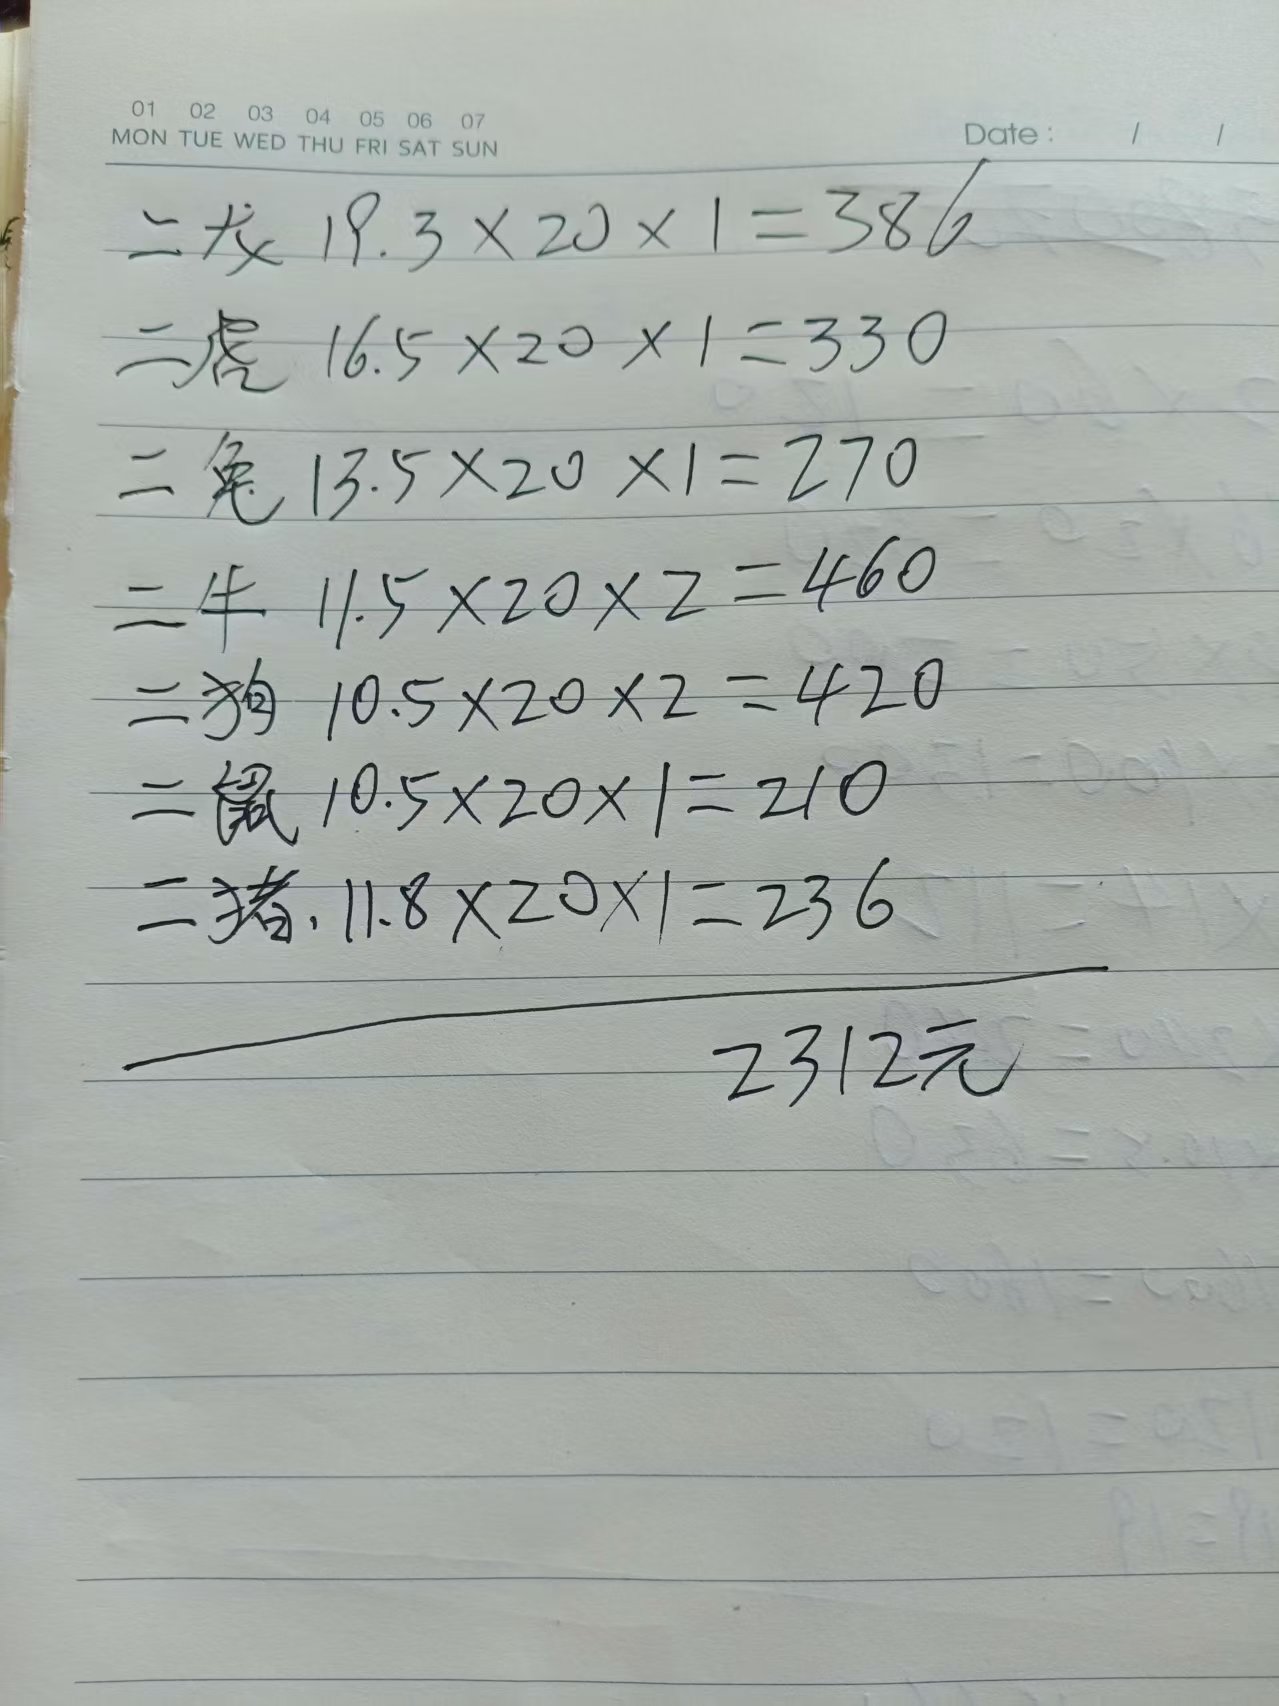 01 02 03 04 05 06 07
MON TUE WED THU FRI SAT SUN
Date: / /
二龙 19.3×20×1=386
二虎 16.5×20×1=330
二兔 13.5×20×1=270
二牛 11.5×20×2=460
二狗 10.5×20×2=420
二鼠 10.5×20×1=210
二猪. 11.8×20×1=236
2312元